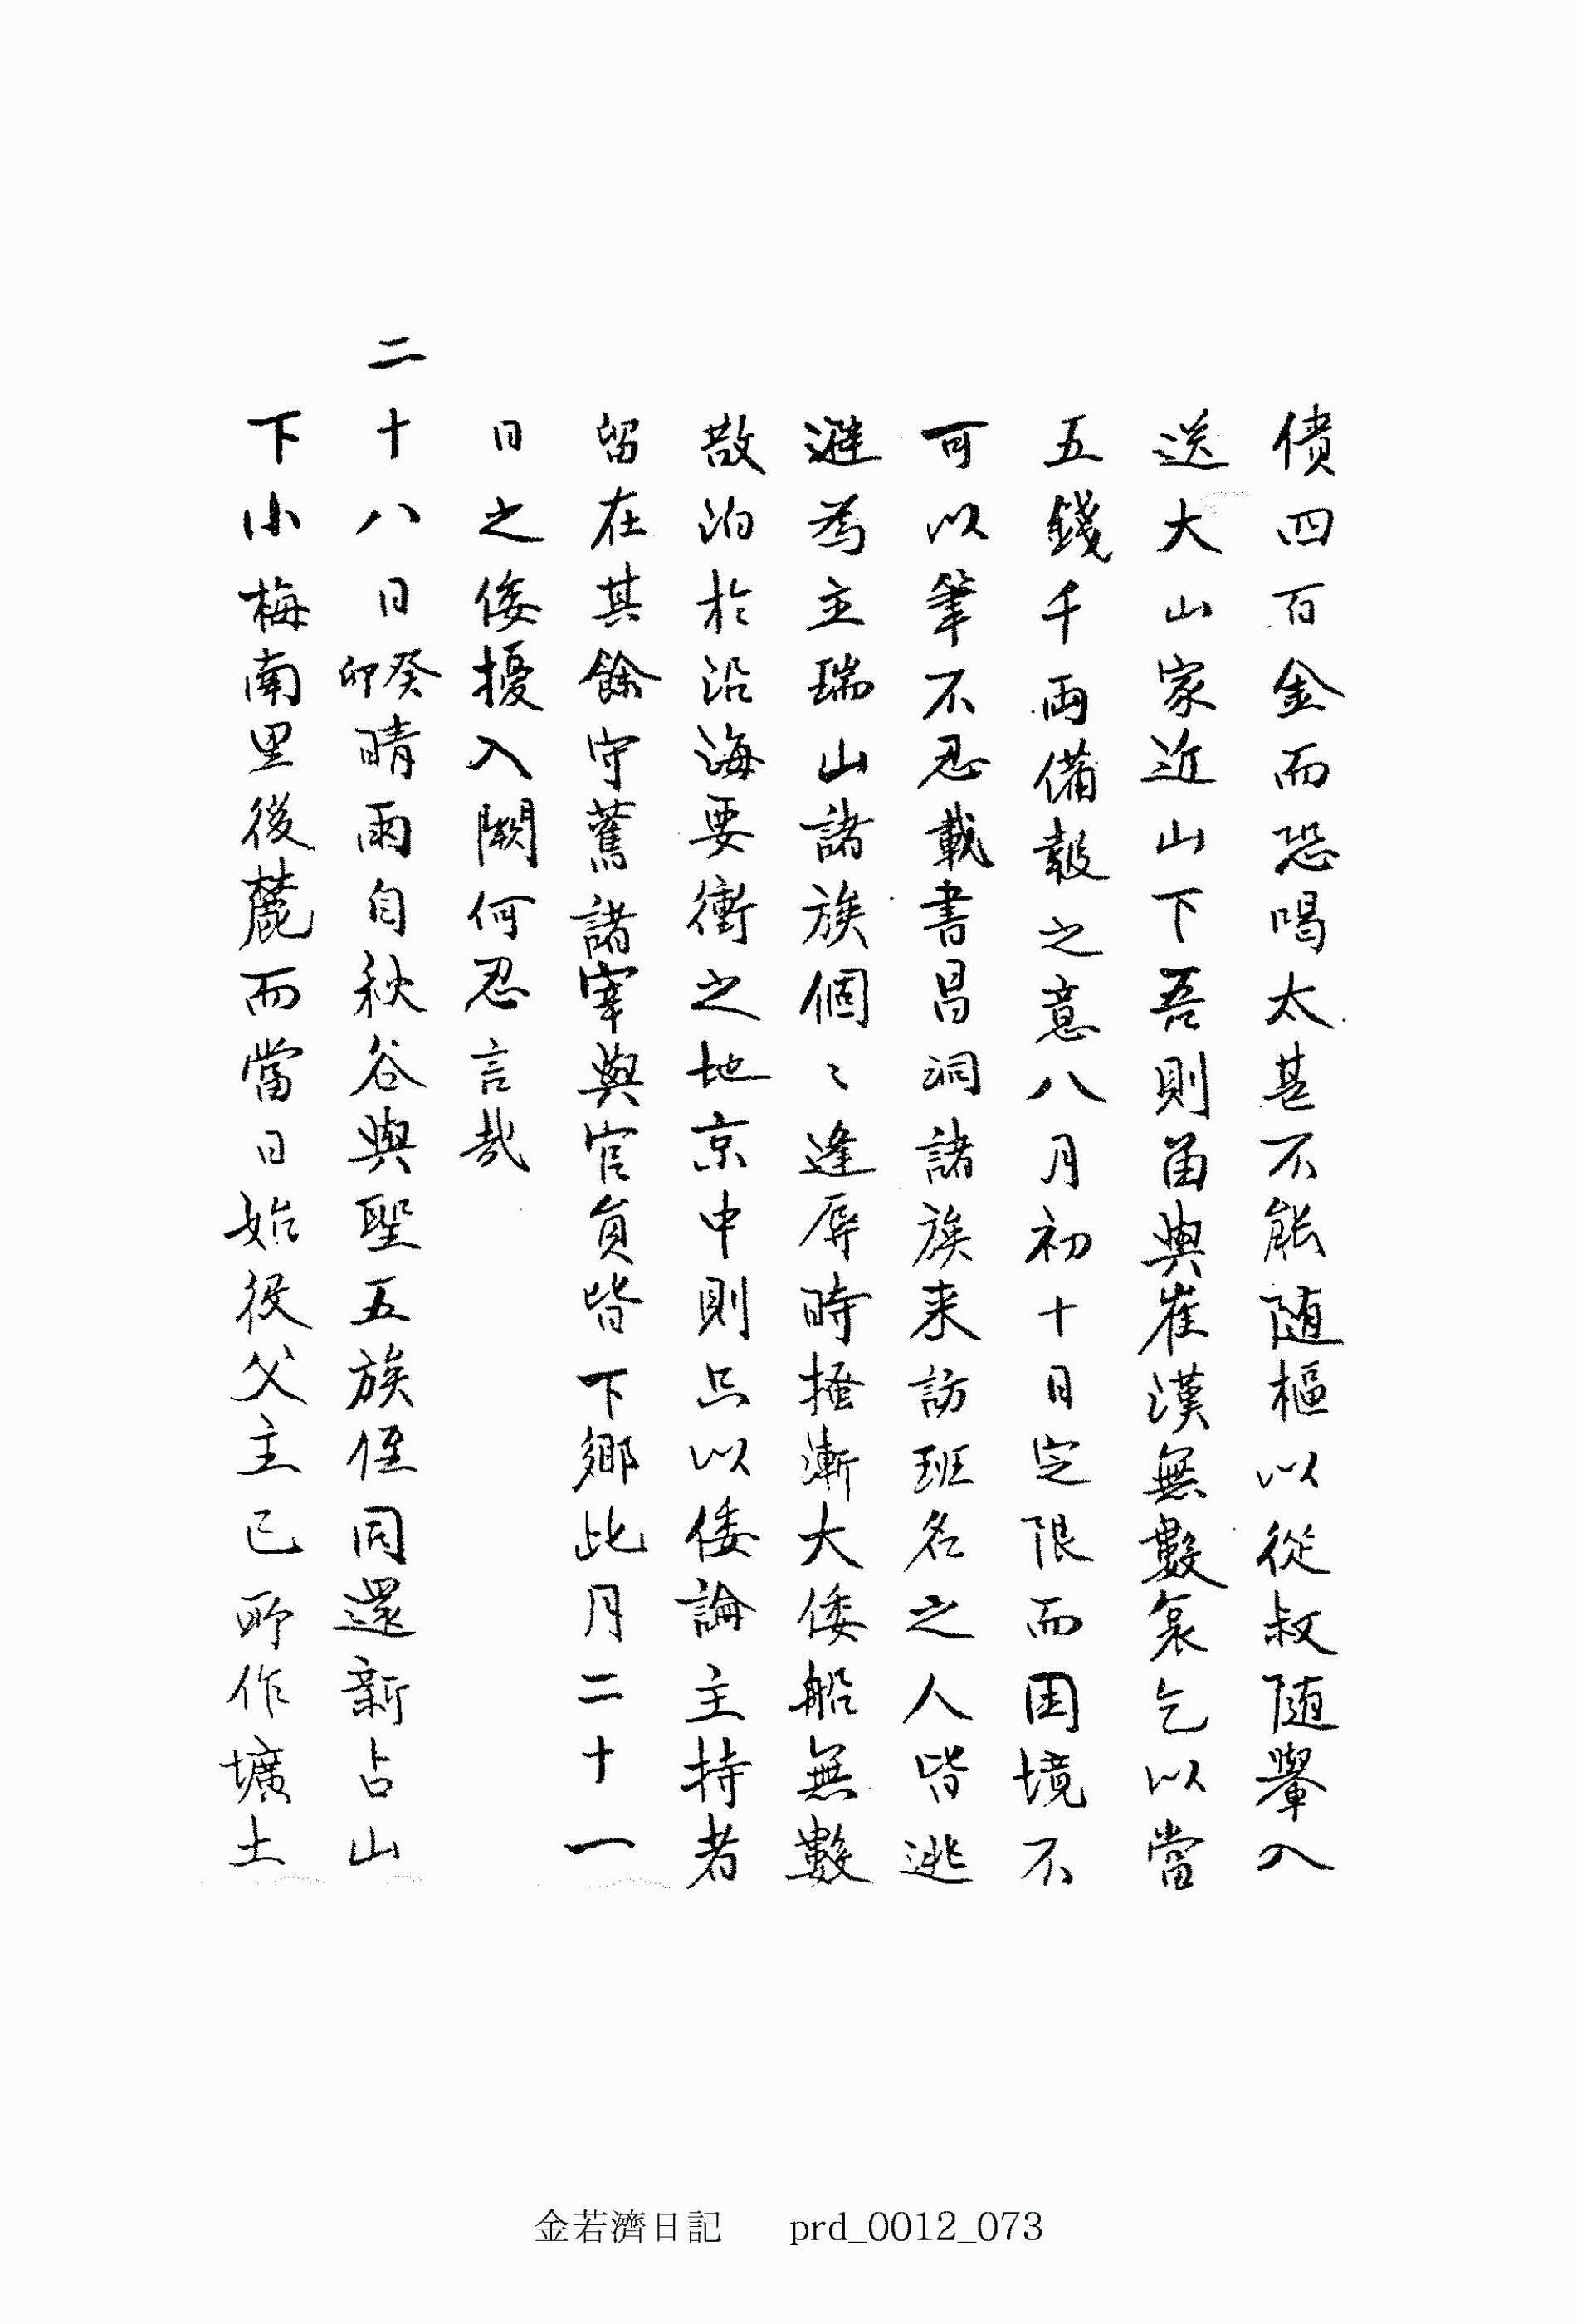 債四百金而恐喝太甚不能随樞以從叔随轝入
送大山家近山下吾則留與崔漢無數哀乞以當
五錢千兩備報之意八月初十日定限而困境不
可以筆不忍載書昌洞諸族来訪班名之人皆逃
避為主瑞山諸族個〻逢辱時搔漸大倭船無數
散泊於沿海要衝之地京中則只以倭論主持者
留在其餘守蒿諸宰與官員皆下鄉此月二十一
日之倭擾入闕何忍言哉
二十八日癸卯晴雨自秋谷與聖五族侄同還新占山
下小梅南里後麓而當日始役父主已所作壙土
金若濟日記 prd_0012_073